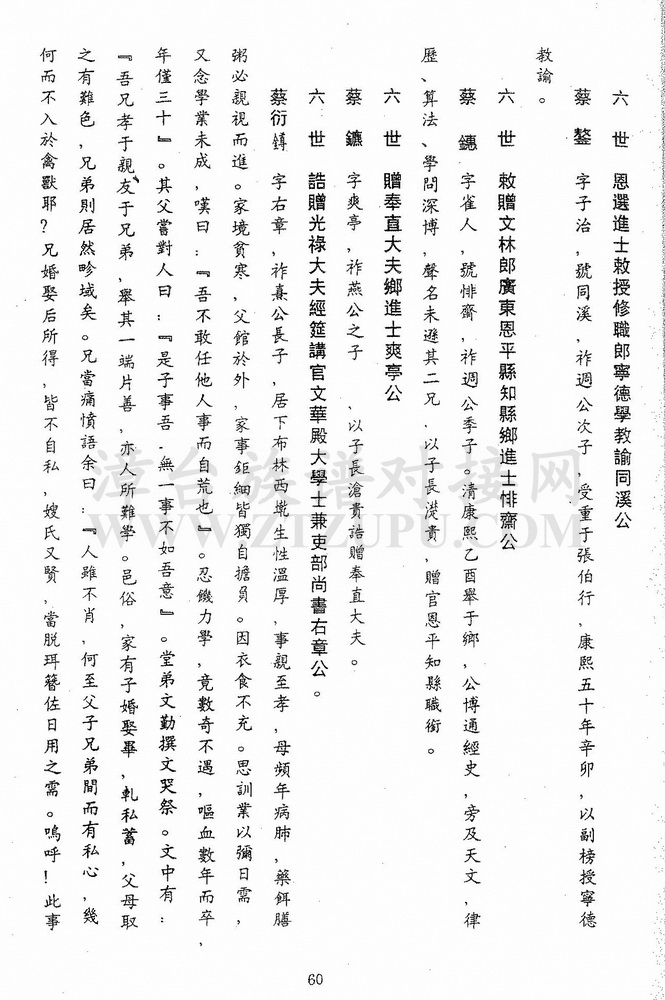 六世 恩選進士敕授修職郎寧德學教諭同溪公
蔡鏊 字子治,號同溪,祚週公次子,受重于張伯行,康熙五十年辛卯,以副榜授寧德
教諭。
六世 敕贈文林郎廣東恩平縣知縣鄉進士悱齋公
蔡 字雀人,號悱齋,祚週公季子。清康熙乙酉舉于鄉,公博通經史,旁及天文,律
歷、算法、學問深博,聲名未遜其二兄.以子長漟貴,贈官恩平知縣職銜。
六世 贈奉直大夫鄉進士爽亭公
蔡鑣 字爽亭,祚燕公之子、以子長滄貴誥贈奉直大夫。
六世 誥贈光祿大夫經筵講官文華殿大學士兼吏部尚書右章公。
蔡衍鎛 字右章,祚熹公長子,居下布林西墘生性溫厚,事親至孝,母頻年病肺,藥餌膳
粥必親視而進。家境貧寒,父館於外,家事鉅細皆獨自擔負。因衣食不充。思訓業以彌日需,
又念學業未成,嘆曰:『吾不敢任他人事而自荒也』。忍饑力學,竟數奇不遇,嘔血數年而卒,
年僅三十』。其父嘗對人曰:『是子事吾.無一事不如吾意』。堂弟文勤撰文哭祭。文中有:
『吾兄孝于親友于兄弟,舉其一端片善,亦人所難學。邑俗,家有子婚娶畢,軋私蓄,父母取
之有難色,兄弟則居然畛域矣。兄當痛憤語余曰:『人雖不肖,何至父子兄弟間而有私心,幾
何而不入於禽獸耶?兄婚娶后所得,皆不自私,嫂氏又賢,當脱珥簪佐日用之需。嗚呼!此事
60
漳台族谱对接网
WWW.ZTZUPU.COM